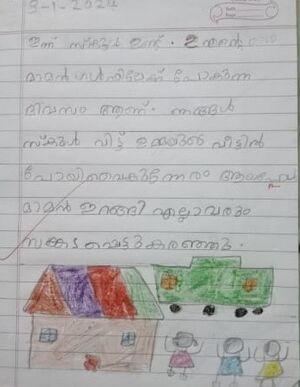 3-1-2024
ഇന്ന് സ്കൂൾ ഉണ്ട്. ഇന്നാണ് എന്റെ
മാമൻ ഗൾഫിലേക്ക് പോകുന്ന
ദിവസം ആണ്. ഞങ്ങൾ
സ്കൂൾ വിട്ട് ഉമ്മയുടെ വീട്ടിൽ
പോയി വൈകുന്നേരം ആയപ്പോ
മാമൻ ഇറങ്ങി എല്ലാവരും
സങ്കടപ്പെട്ടു കരഞ്ഞു.